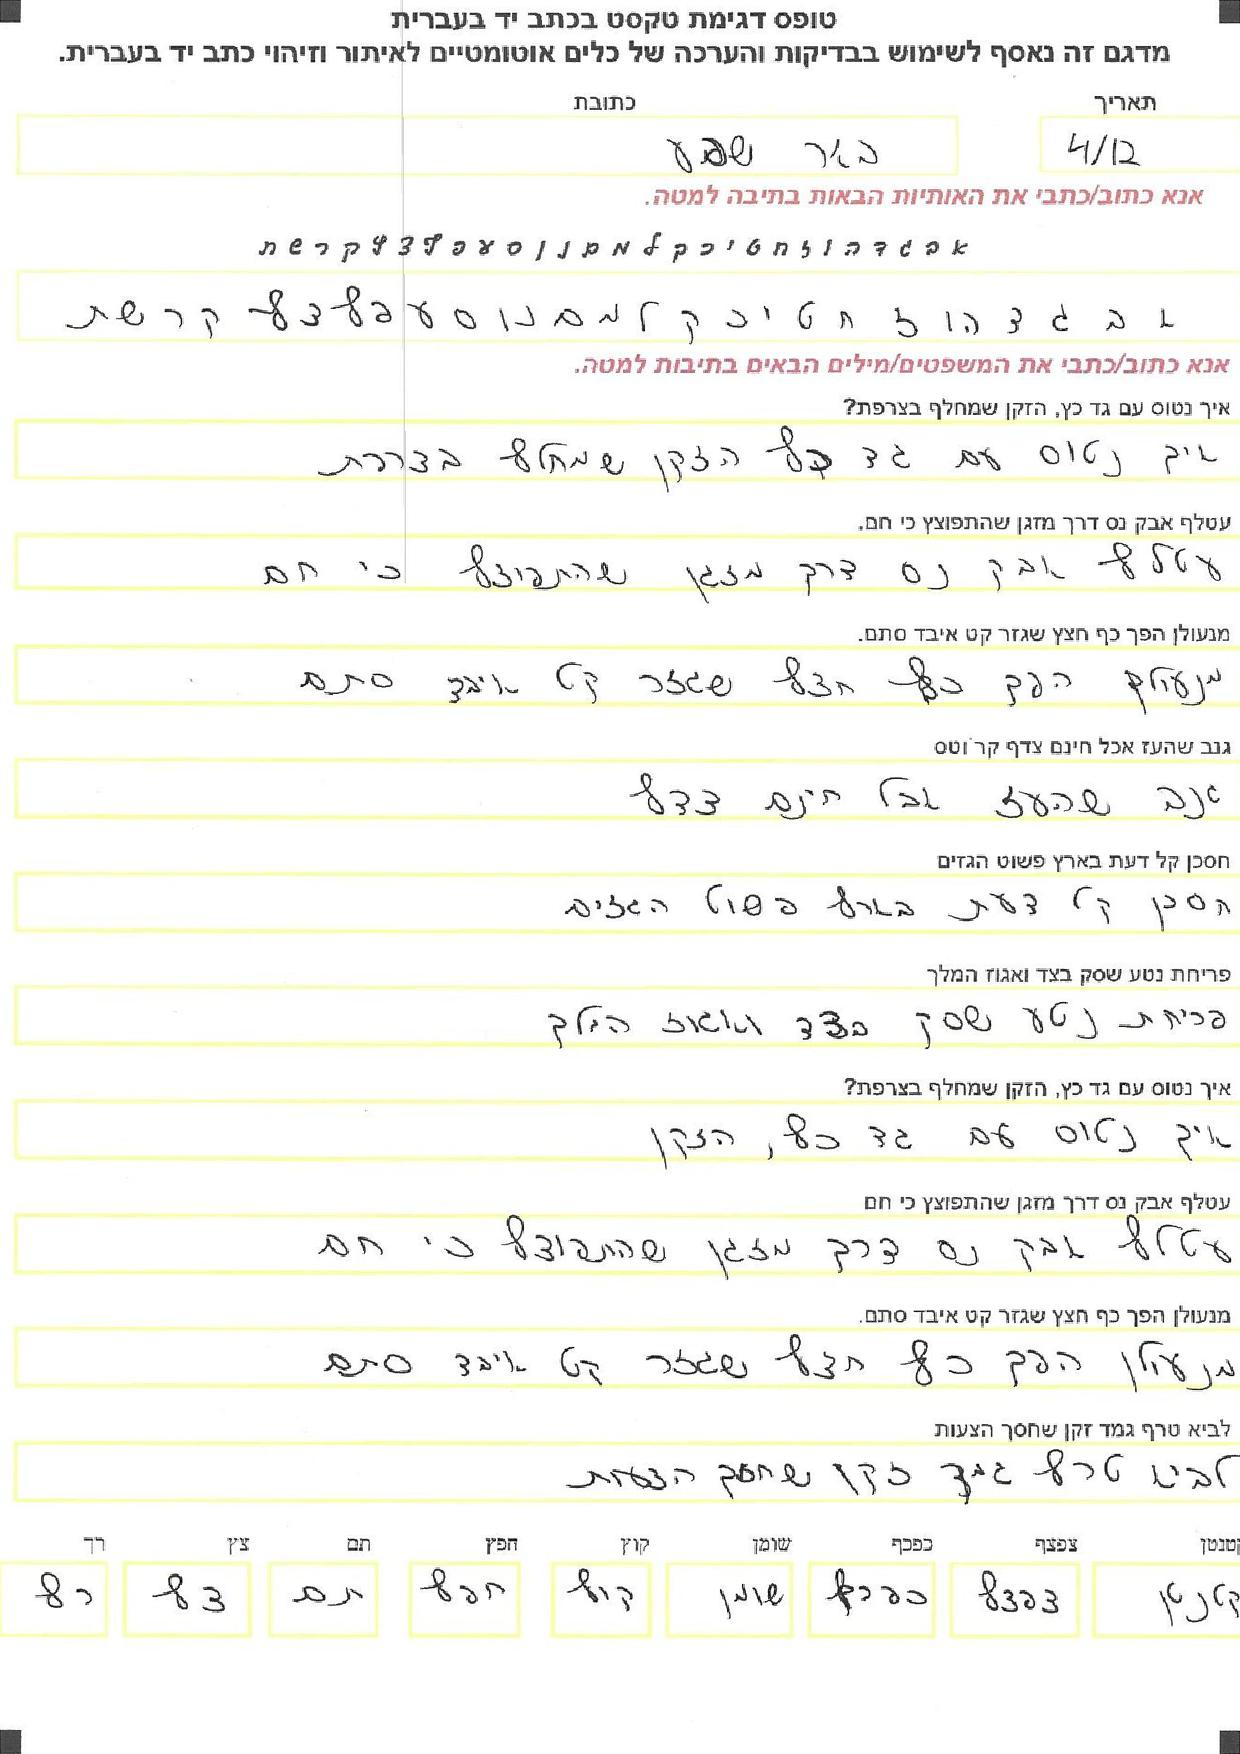 טופס דגימת טקסט בכתב יד בעברית
מדגם זה נאסף לשימוש בבדיקות והערכה של כלים אוטומטיים לאיתור וזיהוי כתב יד בעברית.
תאריך כתובת
4/12 באר שבע
אנא כתוב/כתבי את האותיות הבאות בתיבה למטה.
א ב ג ד ה ו ז ח ט י כ ך ל מ ם נ ן ס ע פ ף צ ץ ק ר ש ת
א ב ג ד ה ו ז ח ט י כ ך ל מ ם נ ן ס ע פ ף צ ץ ק ר ש ת
אנא כתוב/כתבי את המשפטים/מילים הבאים בתיבות למטה.
איך נטוס עם גד כץ, הזקן שמחלף בצרפת?
איך נטוס עם גד כץ הזקן שמחלף בצרפת
עטלף אבק נס דרך מזגן שהתפוצץ כי חם.
עטלף אבק נס דרך מזגן שהתפוצץ כי חם
מנעולן הפך כף חצץ שגזר קט איבד סתם.
מנעולן הפך כף חצץ שגזר קט איבד סתם
גנב שהעז אכל חינם צדף קר וטס
גנב שהעז אכל חינם צדף
חסכן קל דעת בארץ פשוט הגזים
חסכן קל דעת בארץ פשוט הגזים
פריחת נטע שסק בצד ואגוז המלך
פריחת נטע שסק בצד ואגוז המלך
איך נטוס עם גד כץ, הזקן שמחלף בצרפת?
איך נטוס עם גד כץ, הזקן
עטלף אבק נס דרך מזגן שהתפוצץ כי חם
עטלף אבק נס דרך מזגן שהתפוצץ כי חם
מנעולן הפך כף חצץ שגזר קט איבד סתם.
מנעולן הפך כף חצץ שגזר קט איבד סתם
לביא טרף גמד זקן שחסך הצעות
לביא טרף גמד זקן שחסך הצעות
קטנטן צפצף כפכף שומן קוץ חפץ תם צץ רך
קטנטן צפצף כפכף שומן קוץ חפץ תם צץ רף